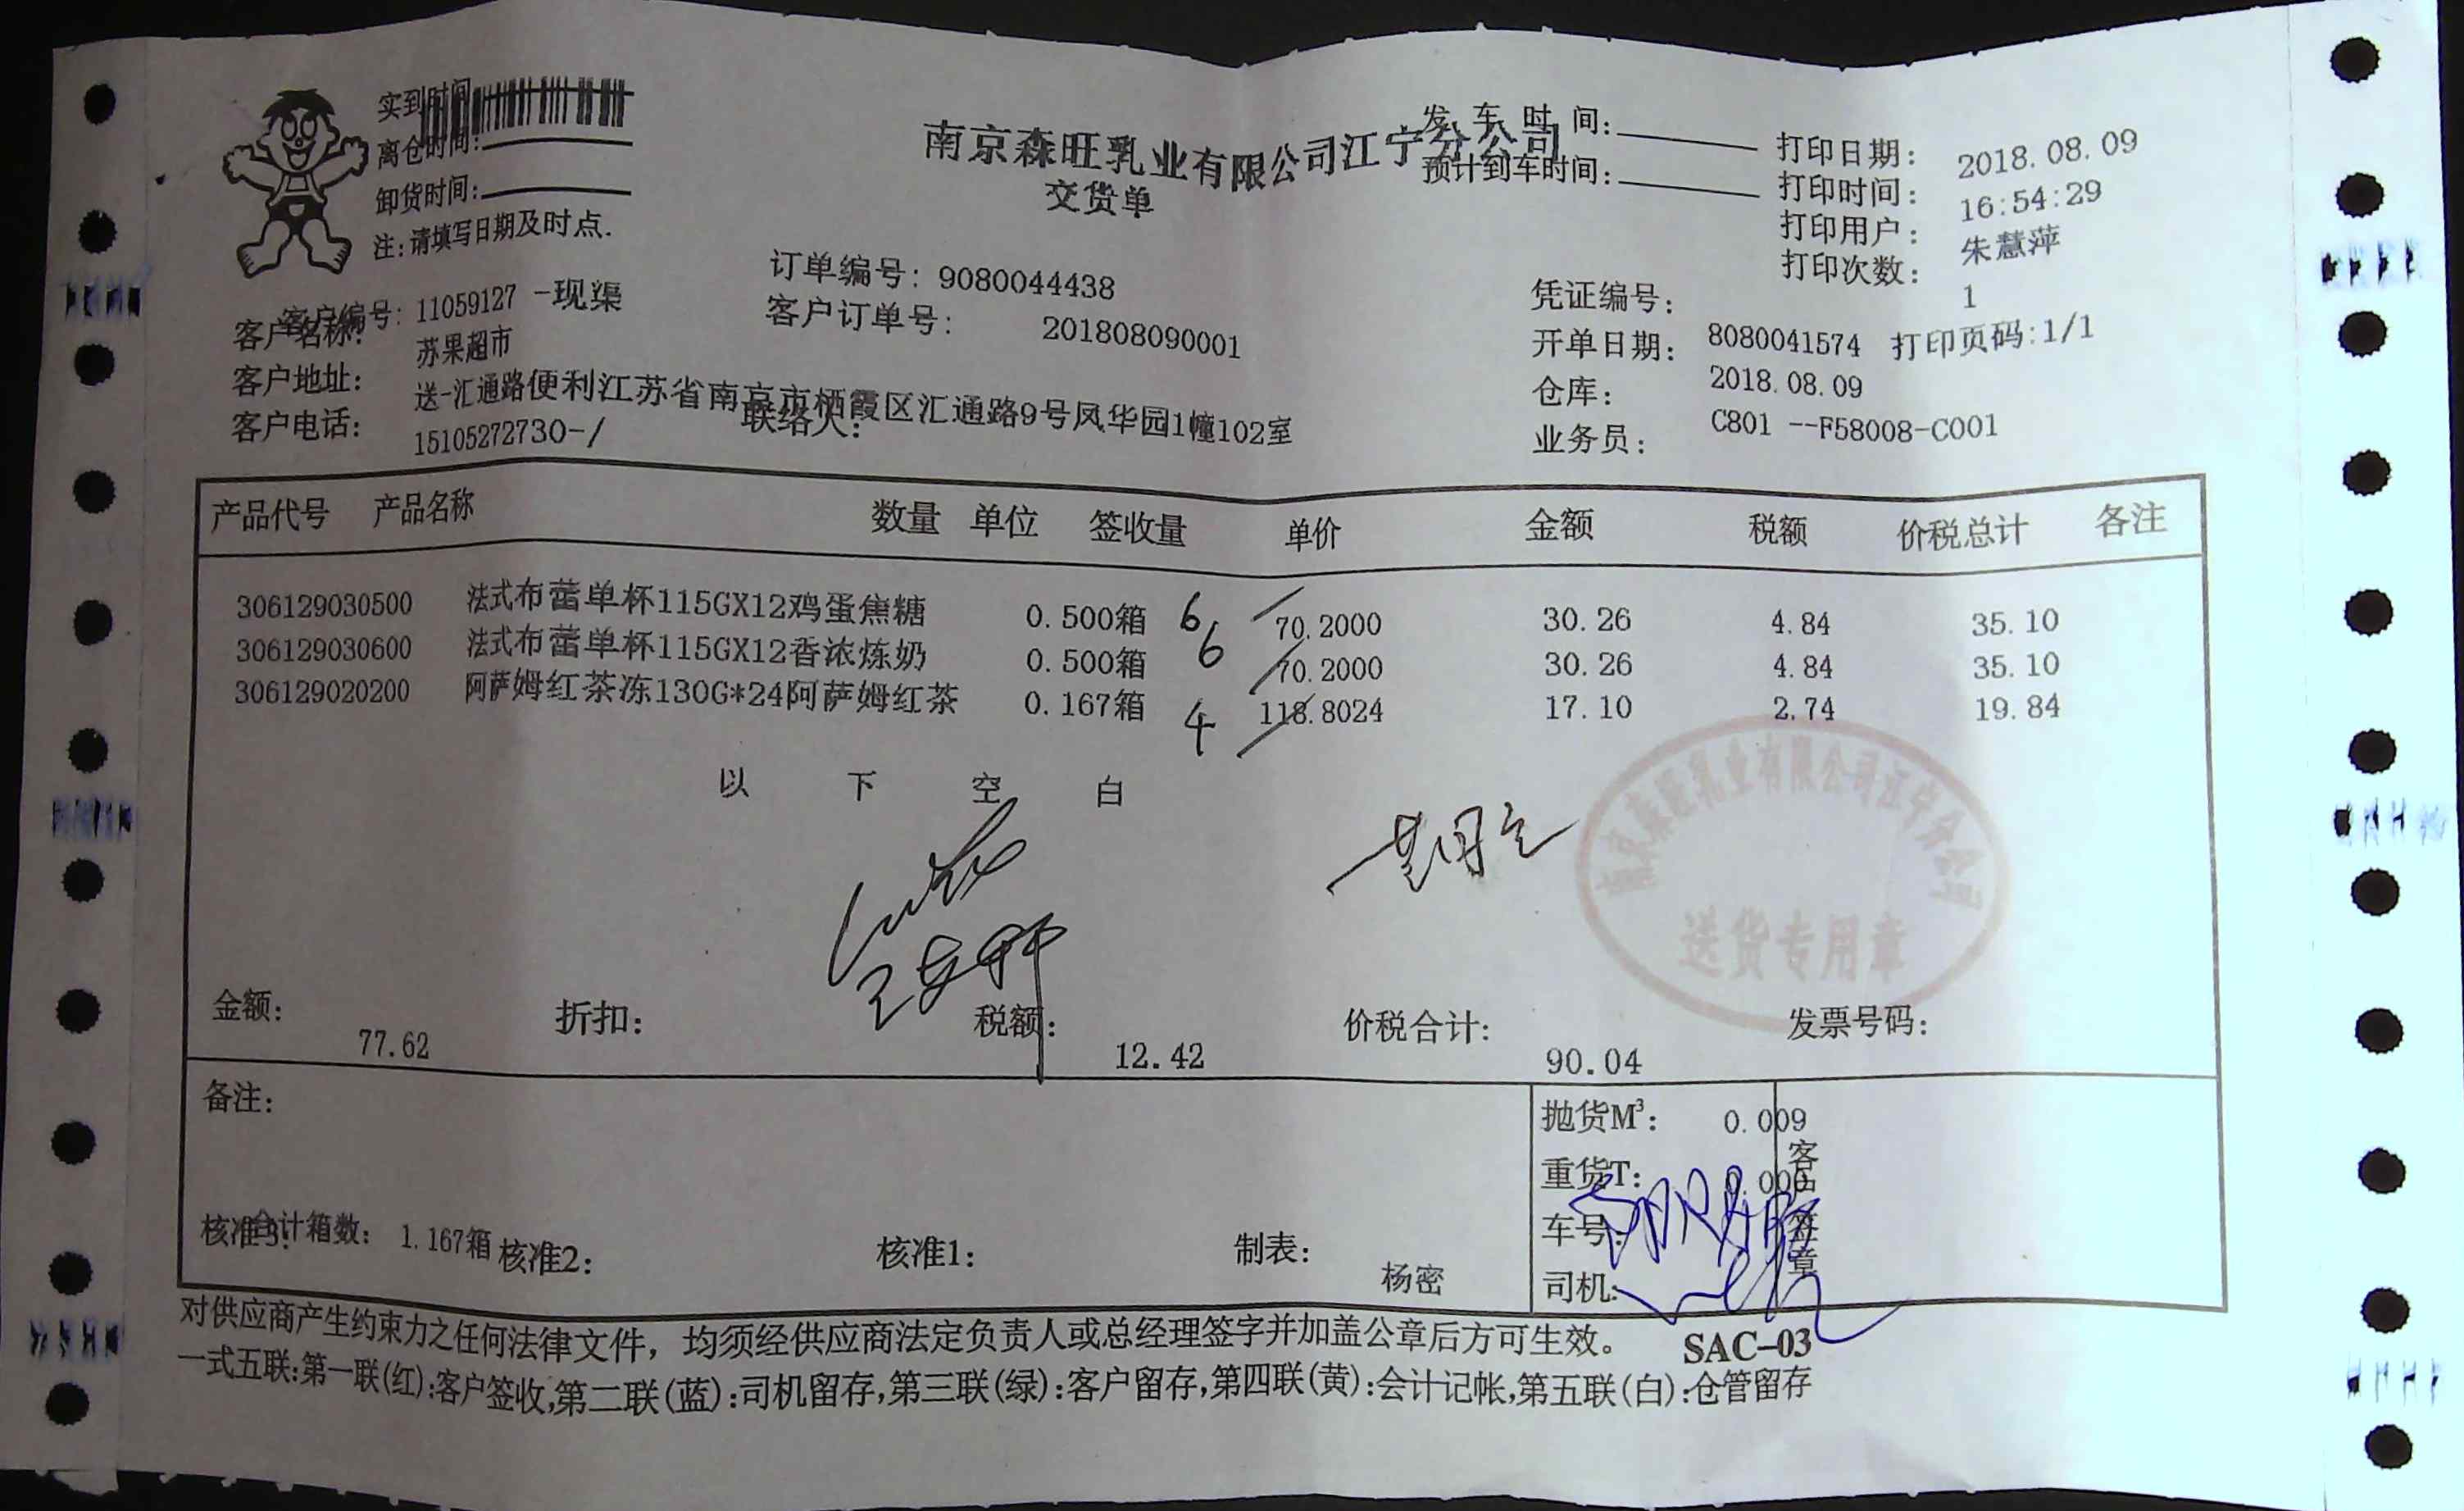 实到时间
离仓时间:
卸货时间:
注:请填写日期及时点.
南京森旺乳业有限公司江宁分公司
交货单
发车时间:
预计到车时间:
打印日期: 2018.08.09
打印时间: 16:54:29
打印用户: 朱慧萍
打印次数: 1
客户编号: 11059127 -现渠
客户名称: 苏果超市
客户地址: 送-汇通路便利江苏省南京市栖霞区汇通路9号凤华园1幢102室
客户电话: 15105272730-/
联络人:
订单编号: 9080044438
客户订单号: 201808090001
凭证编号: 8080041574 打印页码:1/1
开单日期: 2018.08.09
仓库: C801 --F58008-C001
业务员:
产品代号 产品名称 数量 单位 签收量 单价 金额 税额 价税总计 各注
306129030500 法式布蕾单杯115GX12鸡蛋焦糖 0.500箱 6 70.2000 30.26 4.84 35.10
306129030600 法式布蕾单杯115GX12香浓炼奶 0.500箱 6 70.2000 30.26 4.84 35.10
306129020200 阿萨姆红茶冻130G*24阿萨姆红茶 0.167箱 4 118.8024 17.10 2.74 19.84
以下空白
南京森旺乳业有限公司江宁分公司
送货专用章
金额: 77.62 折扣: 税额: 12.42 价税合计: 90.04 发票号码:
备注:
抛货M³: 0.009
重货T:
车号:
司机:
客户签章
核准3: 合计箱数: 1.167箱 核准2: 核准1: 制表: 杨密
对供应商产生约束力之任何法律文件，均须经供应商法定负责人或总经理签字并加盖公章后方可生效。 SAC-03
一式五联:第一联(红):客户签收,第二联(蓝):司机留存,第三联(绿):客户留存,第四联(黄):会计记帐,第五联(白):仓管留存